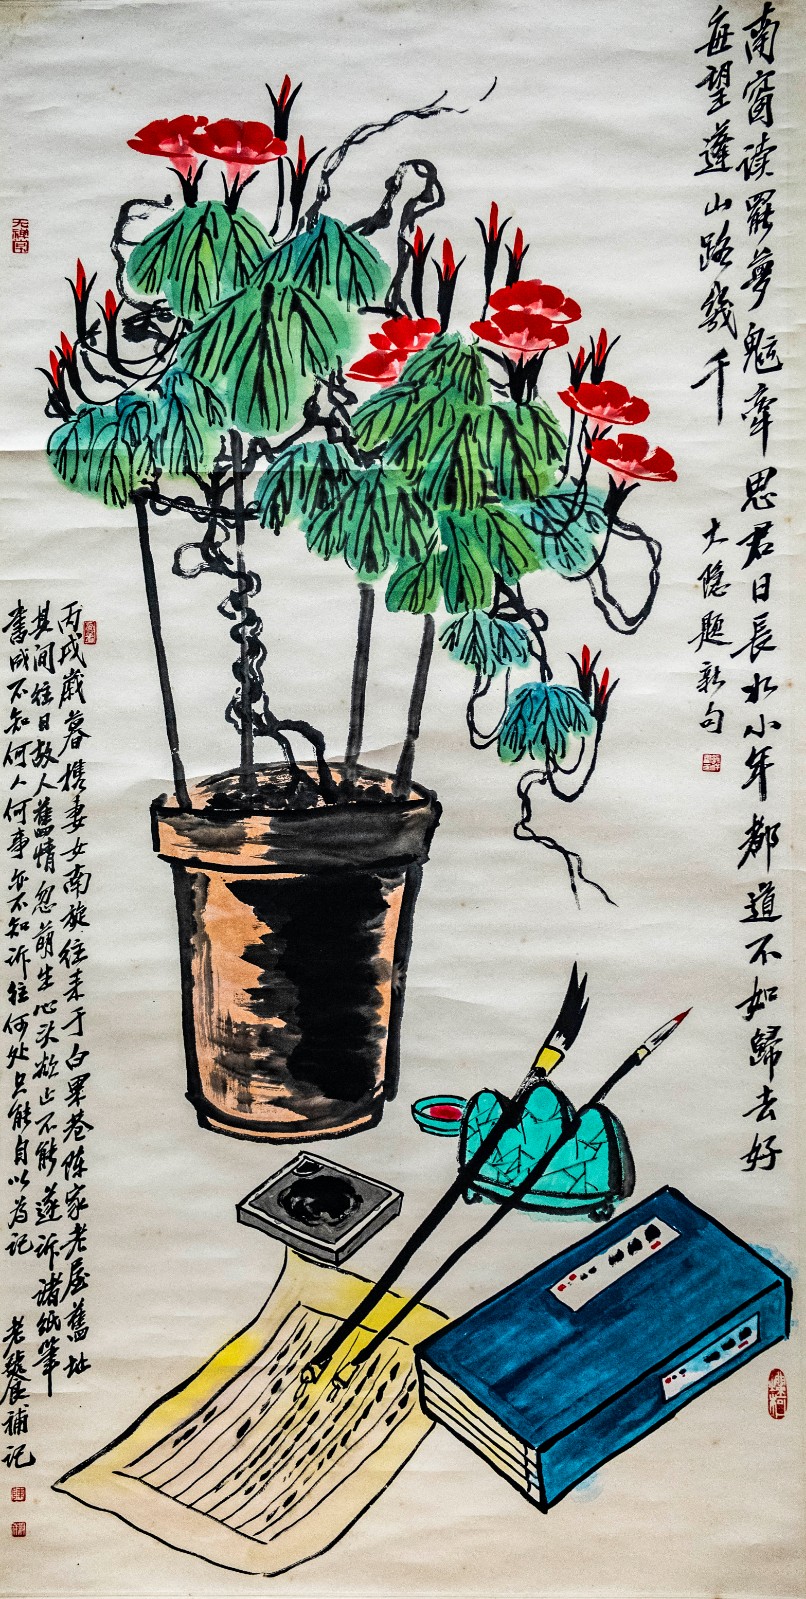 南窗读罢梦魁牵思君日长水小年都道不如歸去好
每望蓬山路幾千
大隐题新句
丙戌歲暮携妻女南旋往来于白果巷陈家老屋舊址
其间往日故人舊情忽萌生心头欲止不能遂诉諸纸笔
書成不知何人何事亦不知诉往何处只能自以为记
老 補记